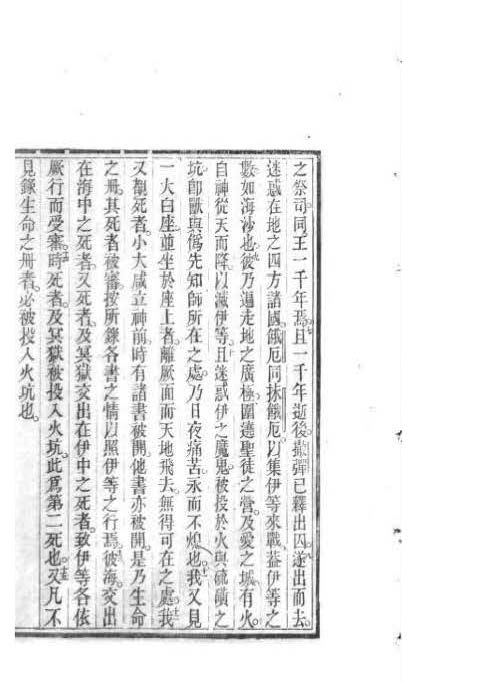 之祭司同王一千年焉且一千年逝後撒彈已釋出囚遂出而去
迷惑在地之四方諸國餓厄同抺餓厄以集伊等來戰葢伊等之
數如海沙也彼乃遍走地之廣極圍遶聖徒之營及愛之城有火
自神從天而降以滅伊等且迷惑伊之魔鬼被投於火與硫磺之
坑卽獸與僞先知師所在之處乃日夜痛苦永而不熄也我又見
一大白座並坐於座上者離厥面而天地飛去無得可在之處我
又覩死者小大咸立神前時有諸書被開他書亦被開是乃生命
之冊其死者被審按所錄各書之情以照伊等之行焉彼海交出
在海中之死者又死者及冥獄交出在伊中之死者致伊等各依
厥行而受審時死者及冥獄被投入火坑此爲第二死也又凡不
見錄生命之冊者必被投入火坑也